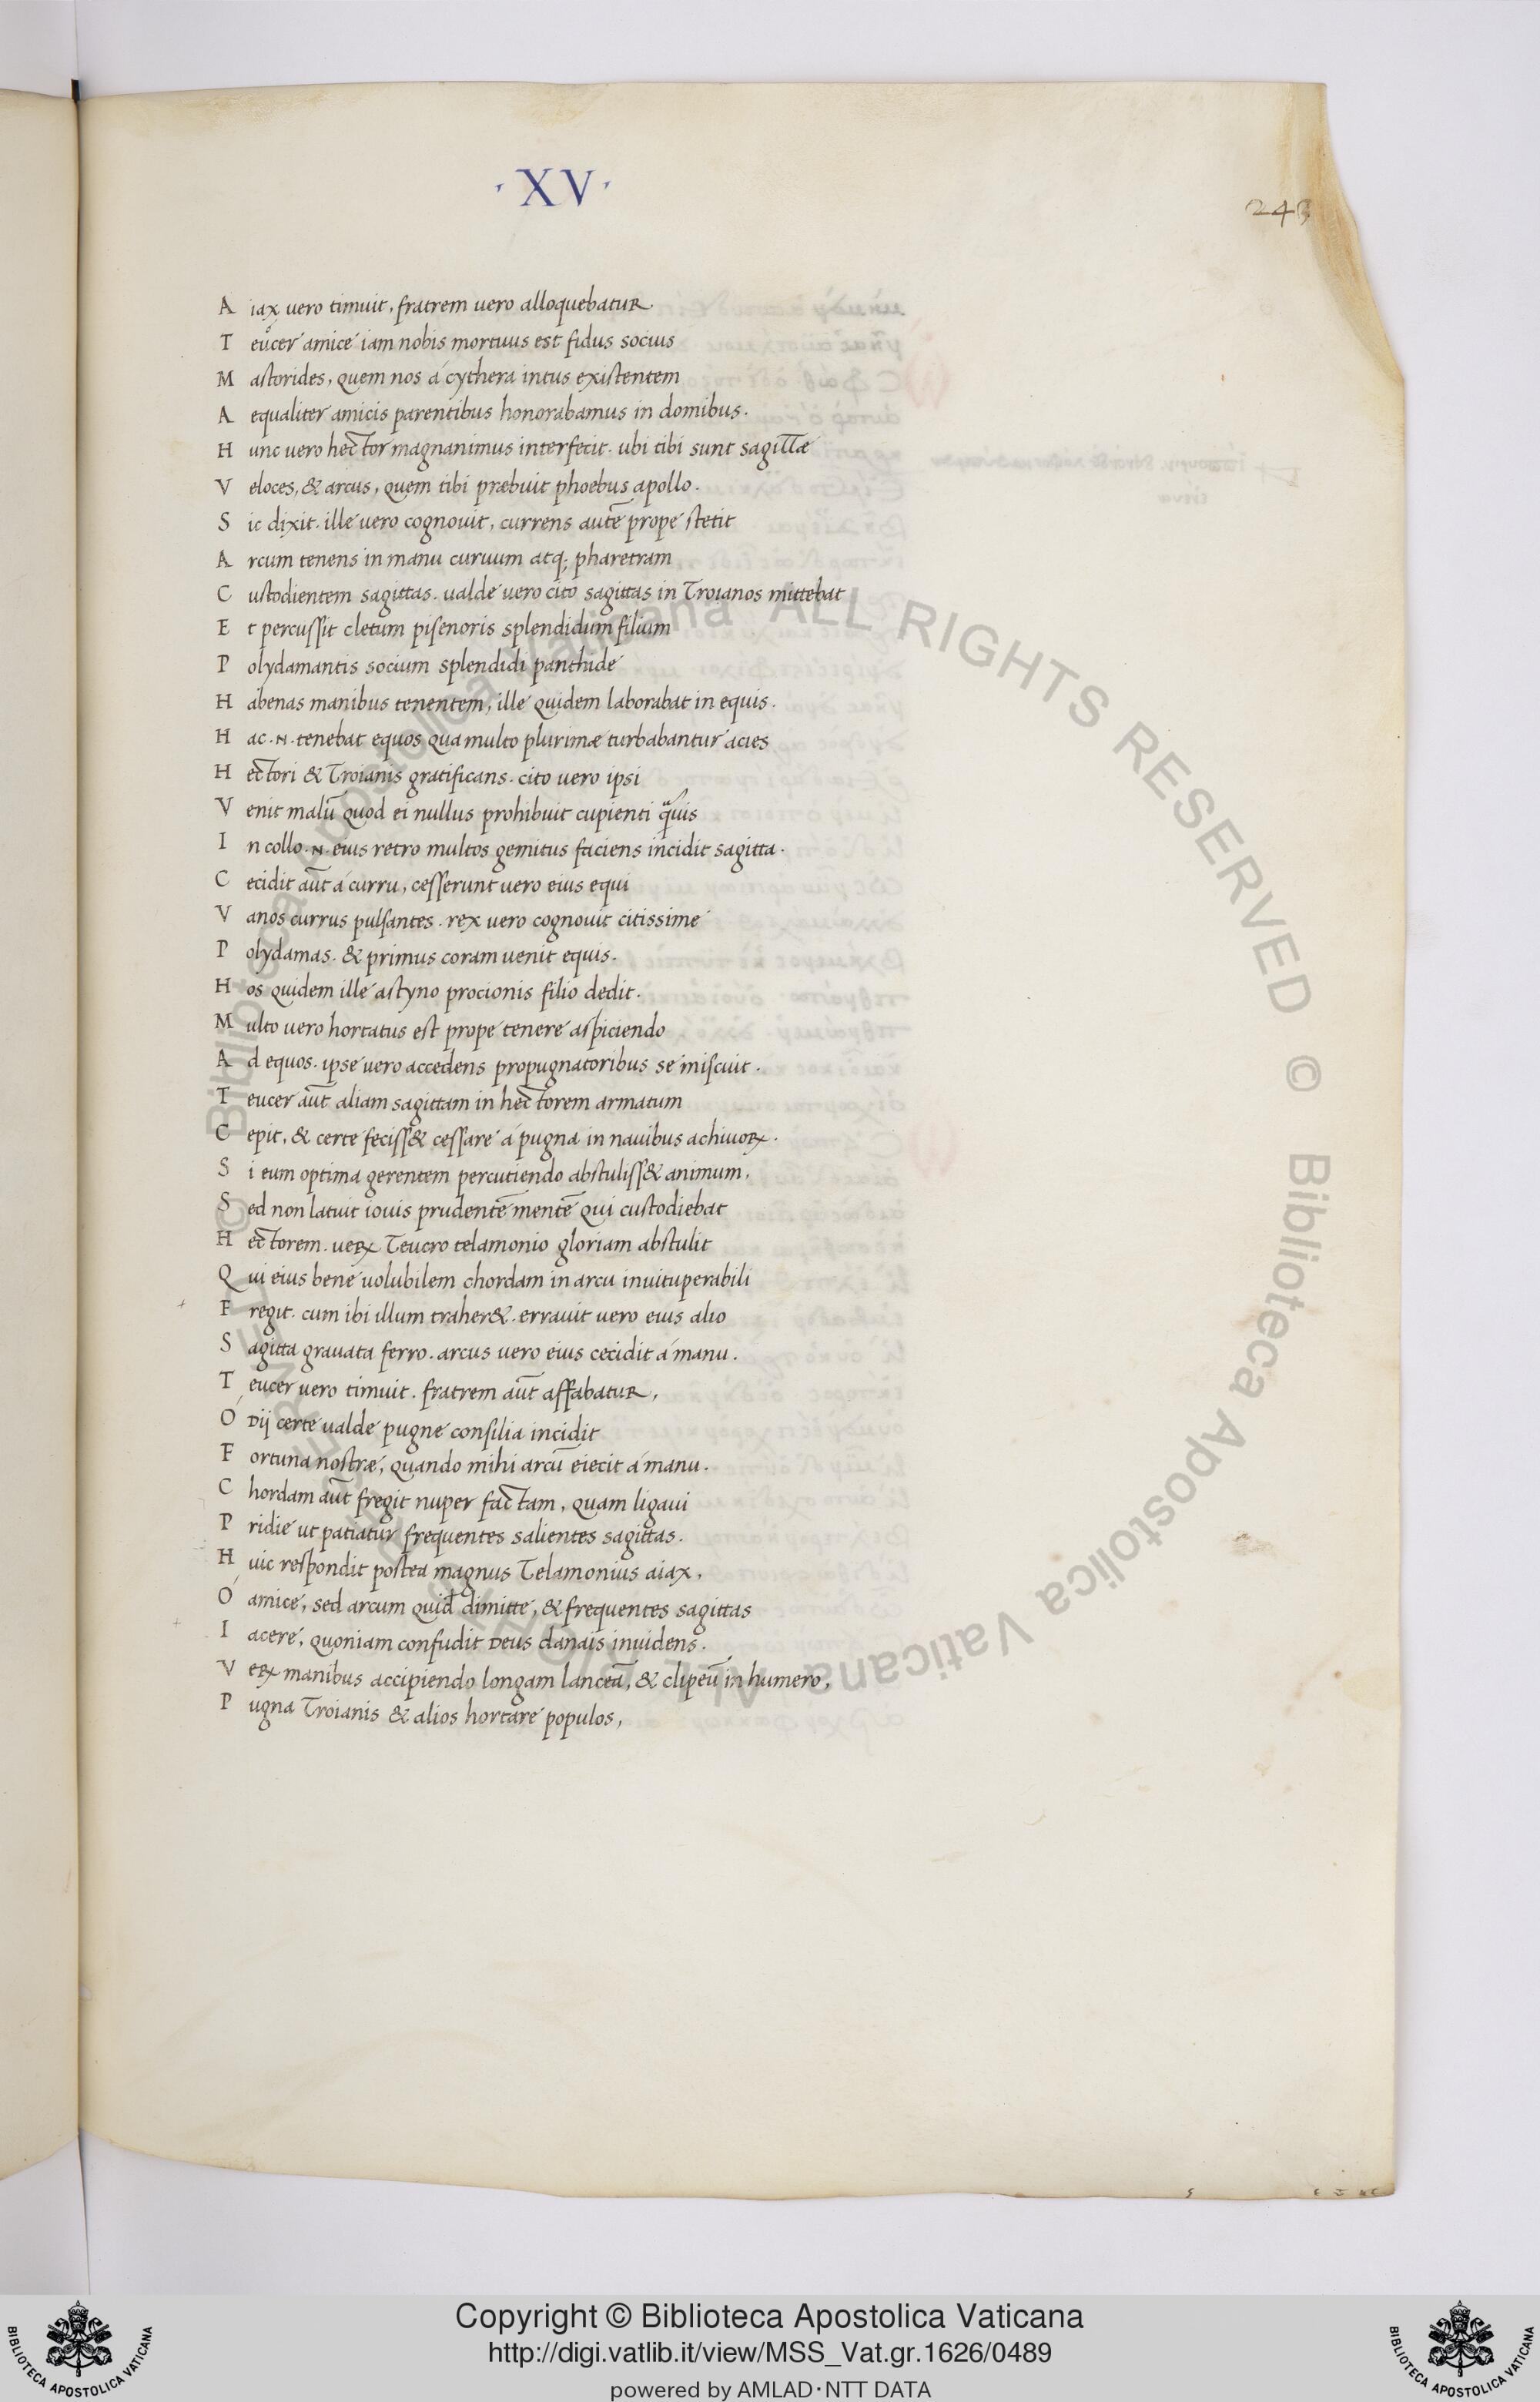 · XV ·
243
A iax uero timuit, fratrem uero alloquebatur.
T eucer amice iam nobis mortuus est fidus socius
M astorides, quem nos á cythera intus existentem
A equaliter amicis parentibus honorabamus in domibus.
H unc uero hector magnanimus interfecit. ubi tibi sunt sagittæ
V eloces, & arcus, quem tibi præbuit phoebus apollo.
S ic dixit. ille uero cognouit, currens autē prope stetit
A rcum tenens in manu curuum atq; pharetram
C ustodientem sagittas. ualde uero cito sagittas in Troianos mittebat
E t percussit cletum pisenoris splendidum filium
P olydamantis socium splendidi panthide
H abenas manibus tenentem, ille quidem laborabat in equis.
H ac .N. tenebat equos qua multo plurimæ turbabantur acies
H ectori & Troianis gratificans. cito uero ipsi
V enit malū quod ei nullus prohibuit cupienti
I n collo .N. eius retro multos gemitus faciens incidit sagitta.
C ecidit aūt á curru, cesserunt uero eius equi
V anos currus pulsantes. rex uero cognouit citissime
P olydamas. & primus coram uenit equis.
H os quidem ille astyno procionis filio dedit.
M ulto uero hortatus est prope tenere aspiciendo
A d equos. ipse uero accedens propugnatoribus se miscuit.
T eucer aūt aliam sagittam in hectorem armatum
C epit, & certe feciss& cessare á pugna in nauibus achiuoꝝ.
S i eum optima gerentem percutiendo abstuliss& animum,
S ed non latuit iouis prudentē mentē qui custodiebat
H ectorem. ueꝝ Teucro telamonio gloriam abstulit
Q ui eius bene uolubilem chordam in arcu inuituperabili
F regit. cum ibi illum traher&. errauit uero eius alio
S agitta grauata ferro. arcus uero eius cecidit á manu.
T eucer uero timuit. fratrem aūt affabatur,
Ó Dij certe ualde pugne consilia incidit
F ortuna nostræ, quando mihi arcū eiecit á manu.
C hordam aūt fregit nuper factam, quam ligaui
P ridie ut patiatur frequentes salientes sagittas.
H uic respondit postea magnus Telamonius aiax,
Ó amice, sed arcum quid dimitte, & frequentes sagittas
I acere, quoniam confudit Deus danais inuidens.
V eꝝ manibus accipiendo longam lanceā, & clipeū in humero,
P ugna Troianis & alios hortare populos,
© Biblioteca Apostolica Vaticana ALL RIGHTS RESERVED © Biblioteca Apostolica Vaticana ALL RIGHTS RESERVED
Copyright © Biblioteca Apostolica Vaticana
http://digi.vatlib.it/view/MSS_Vat.gr.1626/0489
powered by AMLAD·NTT DATA
BIBLIOTECA APOSTOLICA VATICANA
BIBLIOTECA APOSTOLICA VATICANA